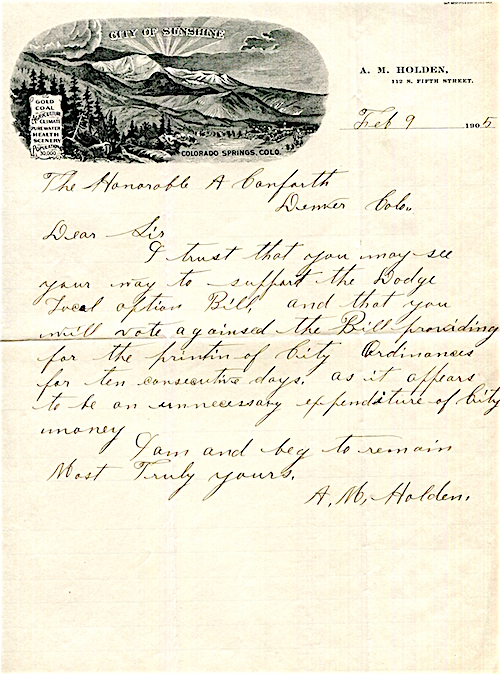 CITY OF SUNSHINE
GOLD
COAL
AGRICULTURE
CLIMATE
PURE WATER
HEALTH
SCENERY
POPULATION
30,000
COLORADO SPRINGS, COLO.
A. M. HOLDEN,
112 S. FIFTH STREET.
Feb 9 1905
The Honorable A Conforth
Denver Colo.
Dear Sir
I trust that you may see
your way to support the Dodge
Local option Bill, and that you
will vote againsed the Bill providing
for the printin of City Ordinances
for ten consecutive days. as it appears
to be an unnecessary expenditure of City
money
I am and beg to remain
Most Truly yours.
A. M. Holden.